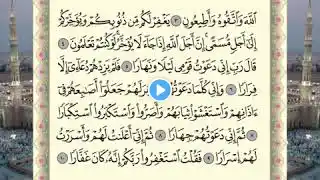 ٱللَّهَ وَٱتَّقُوهُ وَأَطِيعُونِ ٣ يَغْفِرْ لَكُم مِّن ذُنُوبِكُمْ وَيُؤَخِّرْكُمْ
إِلَىٰٓ أَجَلٍ مُّسَمًّى إِنَّ أَجَلَ ٱللَّهِ إِذَا جَآءَ لَا يُؤَخَّرُ لَوْ كُنتُمْ تَعْلَمُونَ ٤
قَالَ رَبِّ إِنِّي دَعَوْتُ قَوْمِي لَيْلًا وَنَهَارًا ٥ فَلَمْ يَزِدْهُمْ دُعَآءِىٓ إِلَّا
فِرَارًا ٦ وَإِنِّي كُلَّمَا دَعَوْتُهُمْ لَهُمْ جَعَلُوٓا۟ أَصَٰبِعَهُمْ فِىٓ
ءَاذَانِهِمْ وَٱسْتَغْشَوْا۟ ثِيَابَهُمْ وَأَصَرُّوا۟ وَٱسْتَكْبَرُوا۟ ٱسْتِكْبَارًا
٧ ثُمَّ إِنِّي دَعَوْتُهُمْ جِهَارًا ٨ ثُمَّ إِنِّىٓ أَعْلَنتُ لَهُمْ وَأَسْرَرْتُ
لَهُمْ إِسْرَارًا ٩ فَقُلْتُ ٱسْتَغْفِرُوا۟ رَبَّكُمْ إِنَّهُۥ كَانَ غَفَّارًا ١٠